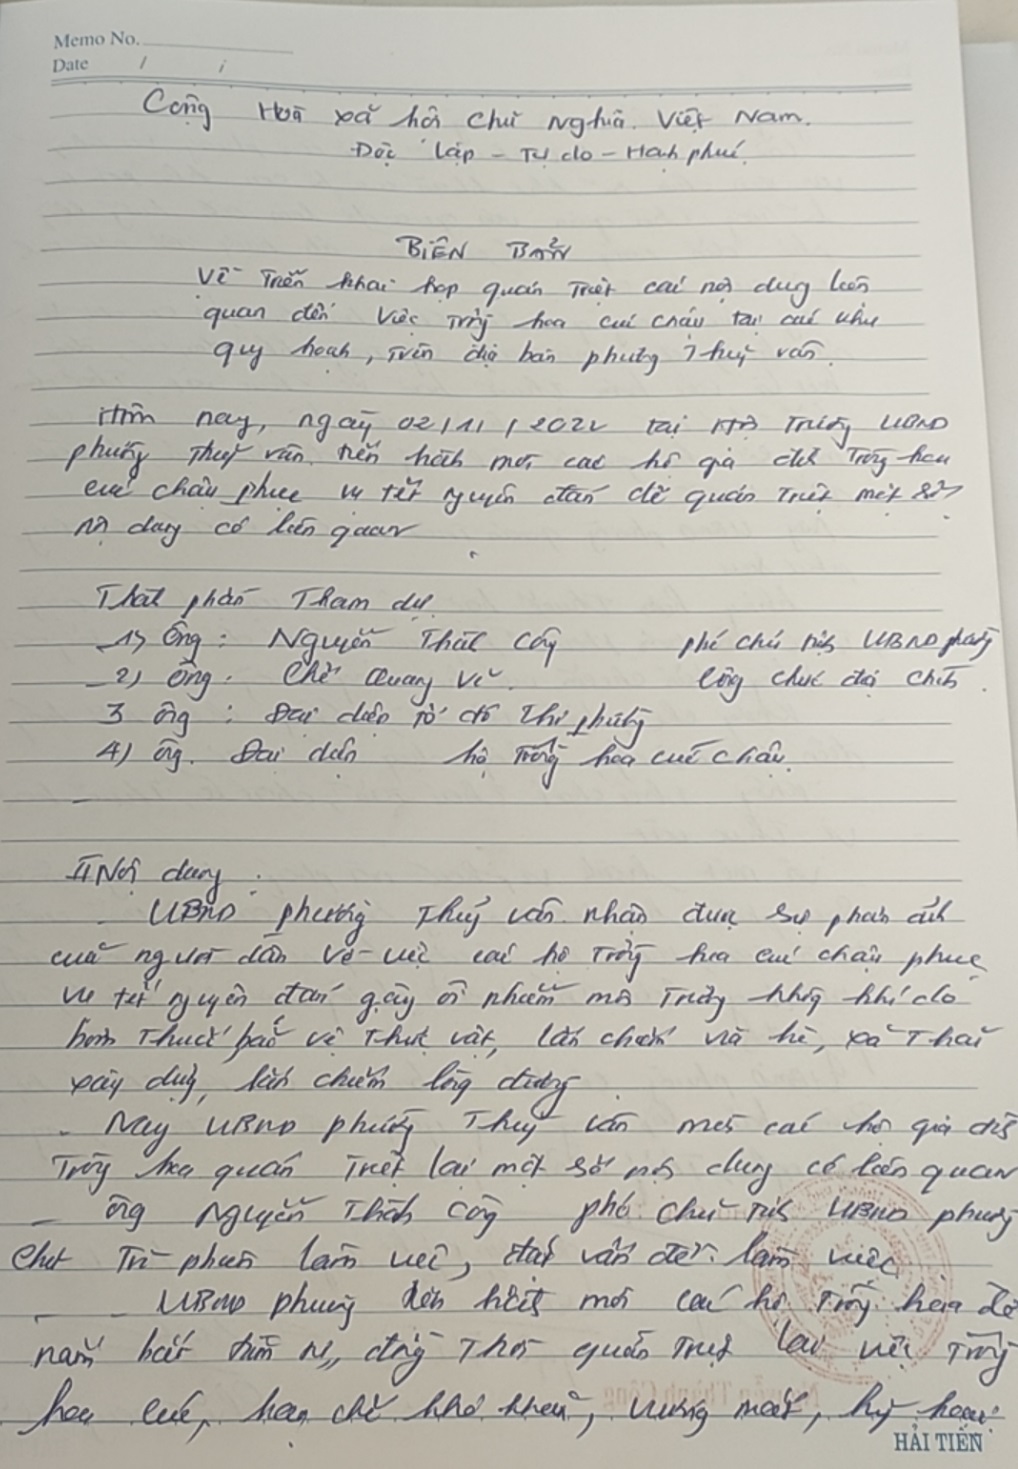 Memo No.
Date / /
Cộng Hoà xã hội Chủ Nghĩa Việt Nam.
Độc lập - Tự do - Hạnh phúc
BIÊN BẢN
Về Triển khai họp quán Triệt các nội dung liên
quan đến Việc Trồng hoa cúc chậu tại các khu
quy hoạch, Trên địa bàn phường Thuỷ Vân.
Hôm nay, ngày 02/11/2022 tại Hội Trường UBND
phường Thuỷ Vân tiến hành mời các hộ gia đình Trồng hoa
cúc chậu phục vụ tết nguyên đán để quán Triệt một số
nội dung có liên quan
Thành phần Tham dự
1) Ông: Nguyễn Thành Công phó chủ tịch UBND phường
2) Ông. Quang công chức địa chính.
3 ông: Đại diện tổ đô Thị phường
4) ông. Đại diện hộ Trồng hoa cúc chậu.
II Nội dung:
UBND phường Thuỷ Vân nhận được sự phản ánh
của người dân về việc các hộ Trồng hoa cúc chậu phục
vụ tết nguyên đán gây ô nhiễm môi Trường không khí do
bơm Thuốc bảo vệ Thực vật, lấn chiếm vỉa hè, xả Thải
xây dựng, lấn chiếm lòng đường
- Nay UBND phường Thuỷ Vân mời các hộ gia đình
Trồng hoa quán Triệt lại một số nội dung có liên quan
- Ông Nguyễn Thành Công phó chủ tịch UBND phường
Chủ Trì phiên làm việc, đặt vấn đề làm việc
- UBND phường mời các hộ Trồng hoa để
nắm bắt tâm tư, đồng Thời quán Triệt lại việc Trồng
hoa cúc, hạn chế khó khăn, vướng mắc,
Nguyễn Thành Công
HẢI TIẾN